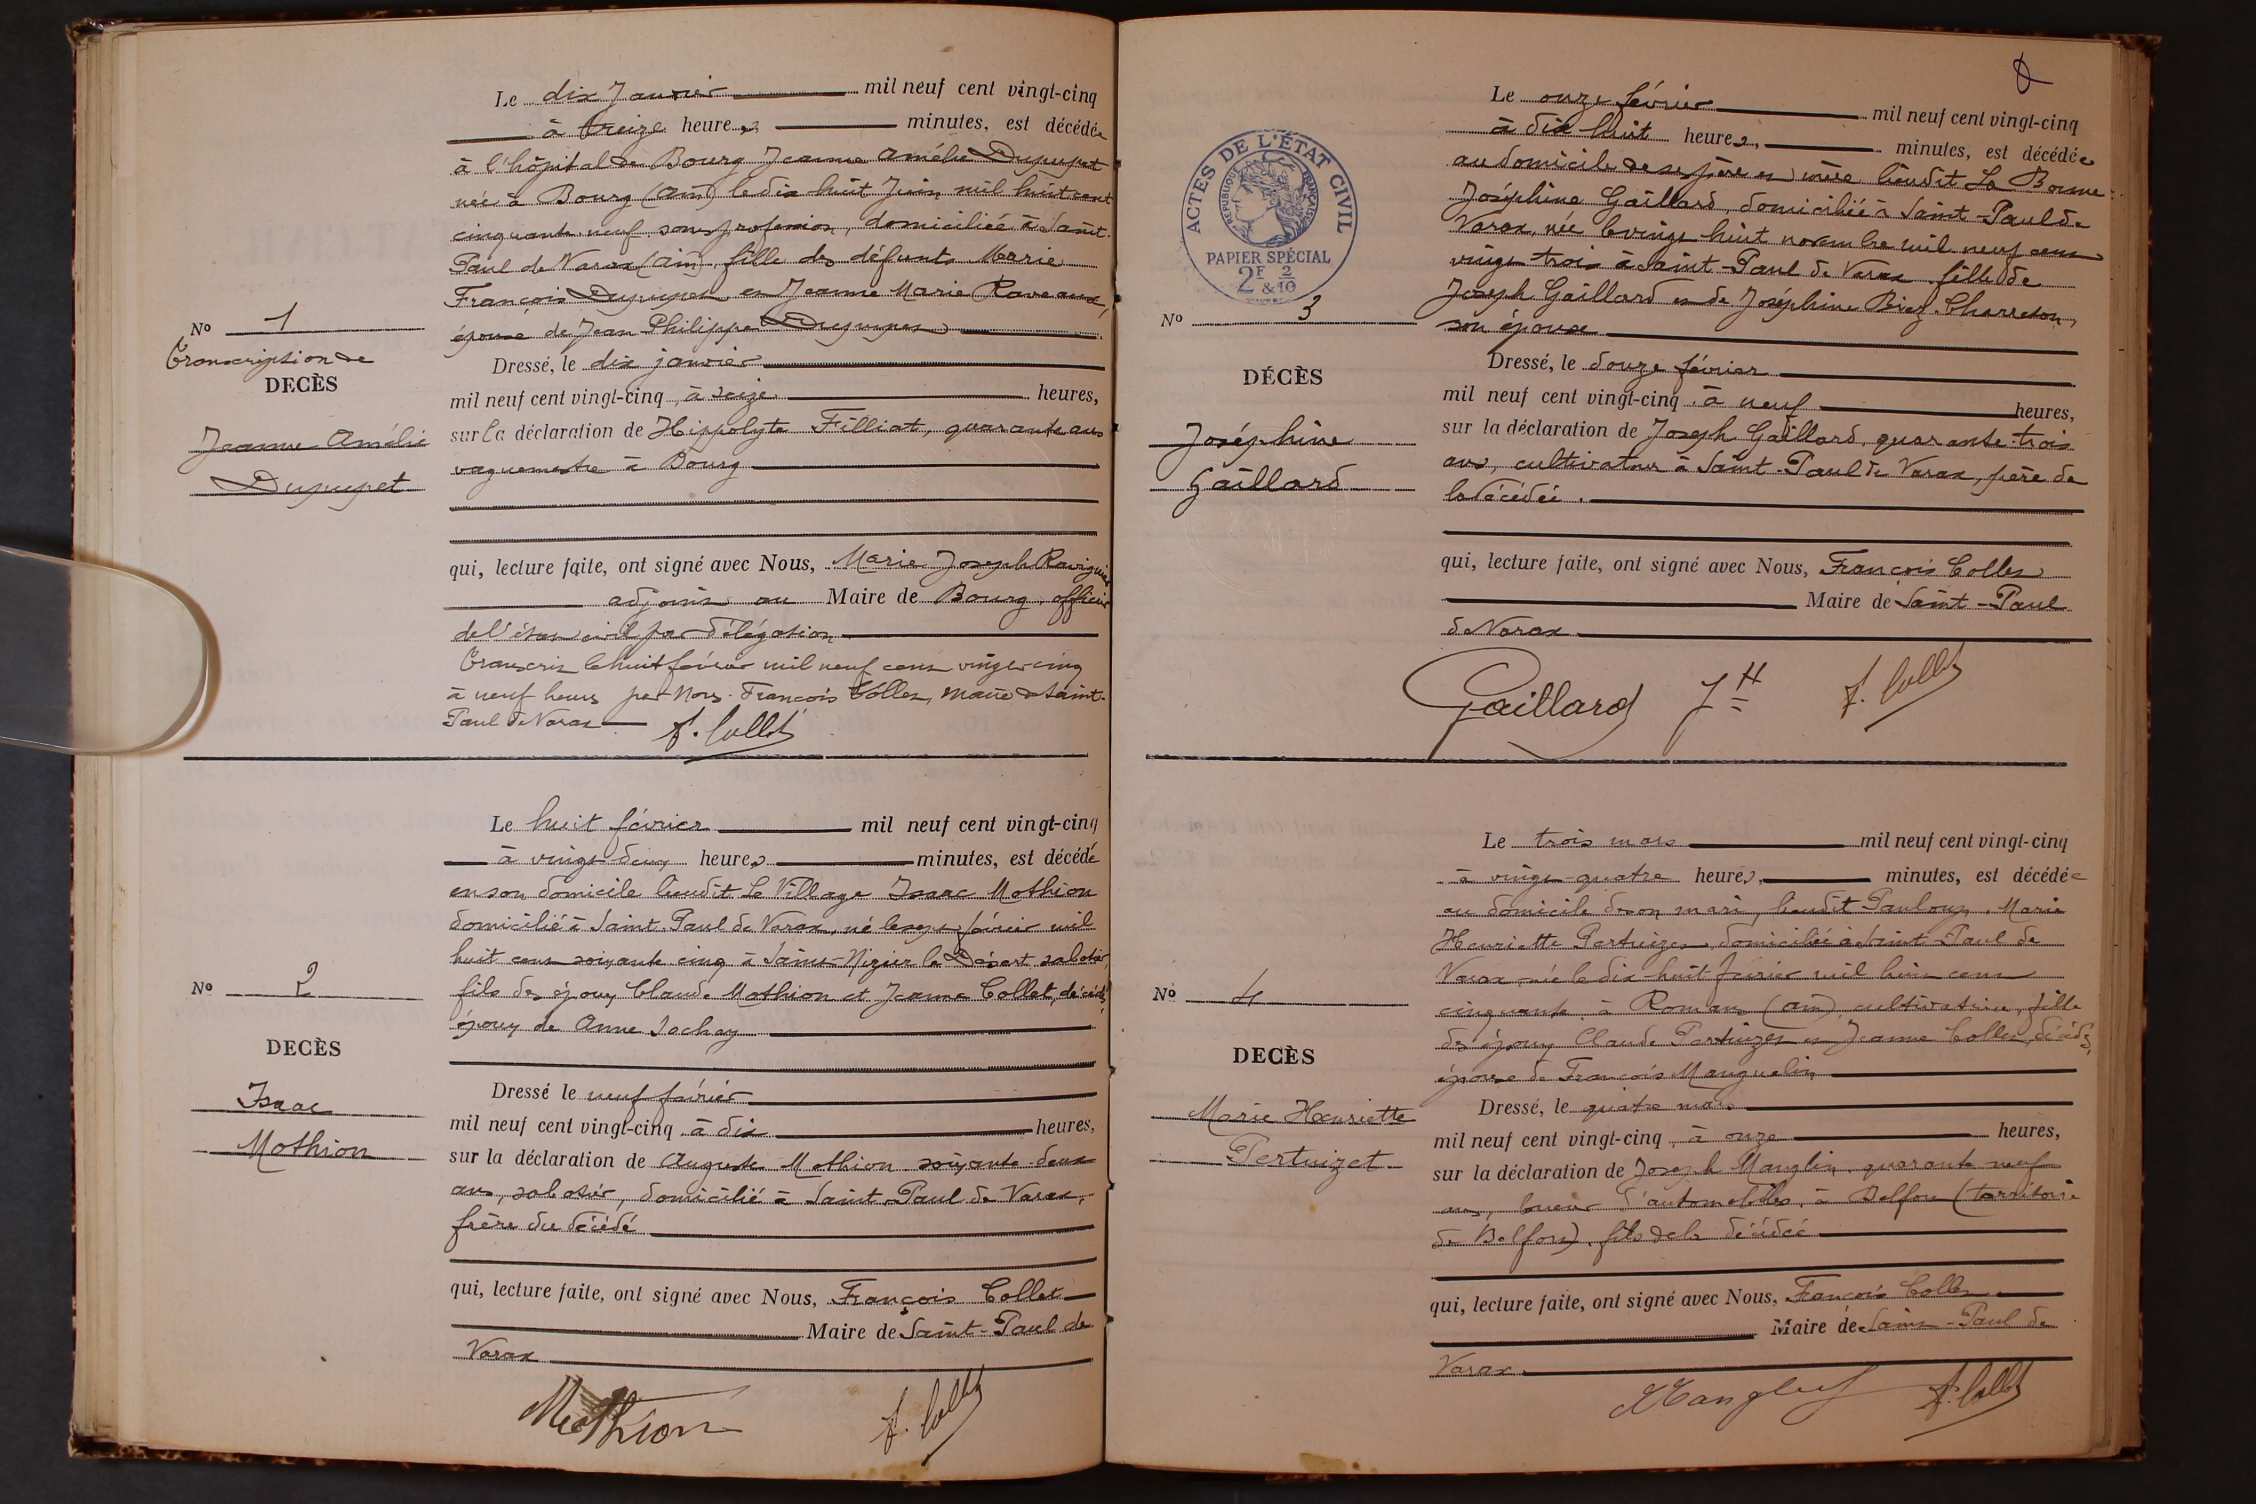 Le dix Janvier mil neuf cent vingt-cinq
à treize heures minutes, est décédée
à l'hôpital de Bourg Jeanne Amélie Dupupet
née à Bourg (Ain) le dix huit Juin mil huit cent
cinquante neuf sans profession, domiciliée à Saint-
Paul de Varax (Ain), fille des défunts Marie
François Dupupet et Jeanne Marie Raveaux,
épouse de Jean Philippe Dupupet
No 1
Transcription de
DECÈS
Jeanne Amélie
Dupupet
Dressé, le dix janvier
mil neuf cent vingt-cinq à seize heures,
sur la déclaration de Hippolyte Filliat, quarante ans
vaguemestre à Bourg
qui, lecture faite, ont signé avec Nous, Marie Joseph
adjoint au Maire de Bourg, officier
de l'état civil par délégation
Transcrit le huit février mil neuf cent vingt cinq
à neuf heures par Nous François Collet, Maire de Saint-
Paul de Varax F. Collet
Le huit février mil neuf cent vingt-cinq
à vingt-deux heures minutes, est décédé
en son domicile lieudit Le Village Isaac Mothion
domicilié à Saint-Paul de Varax, né le février mil
huit cent soixante cinq à Saint-Nizier le Désert, sabotier,
fils des époux Claude Mothion et Jeanne Collet, décédés,
époux de Anne Jachay
No 2
DECÈS
Isaac
Mothion
Dressé le neuf février
mil neuf cent vingt-cinq à dix heures,
sur la déclaration de Auguste Mothion soixante-deux
ans, sabotier, domicilié à Saint-Paul de Varax,
frère du décédé
qui, lecture faite, ont signé avec Nous, François Collet
Maire de Saint-Paul de
Varax
Mothion F. Collet
ACTES DE L'ÉTAT CIVIL
RÉPUBLIQUE FRANÇAISE
PAPIER SPÉCIAL
2F & 2/10
Le onze février mil neuf cent vingt-cinq
à dix huit heures, minutes, est décédée
au domicile de ses père et mère lieudit La Bonne
Joséphine Gaillard, domiciliée à Saint-Paul de
Varax, née le vingt huit novembre mil neuf cent
vingt-trois à Saint-Paul de Varax fille de
Joseph Gaillard et de Joséphine Charreton,
son épouse
No 3
DÉCÈS
Joséphine
Gaillard
Dressé, le douze février
mil neuf cent vingt-cinq à neuf heures,
sur la déclaration de Joseph Gaillard, quarante-trois
ans, cultivateur à Saint-Paul de Varax, père de
la décédée.
qui, lecture faite, ont signé avec Nous, François Collet
Maire de Saint-Paul
de Varax
Gaillard Jh F. Collet
Le trois mars mil neuf cent vingt-cinq
à vingt-quatre heures, minutes, est décédée
au domicile de son mari, lieudit Paulouz, Marie
Henriette Pertuizet domiciliée à Saint-Paul de
Varax née le dix-huit février mil huit cent
cinquante à Romans (Ain), cultivatrice, fille
des époux Claude Pertuizet et Jeanne Collet, décédés,
épouse de François Manguelin
No 4
DECÈS
Marie Henriette
Pertuizet
Dressé, le quatre mars
mil neuf cent vingt-cinq à onze heures,
sur la déclaration de Joseph Manglin, quarante neuf
ans, loueur d'automobiles, à Belfort (territoire
de Belfort), fils de la décédée
qui, lecture faite, ont signé avec Nous, François Collet
Maire de Saint-Paul de
Varax
F. Collet